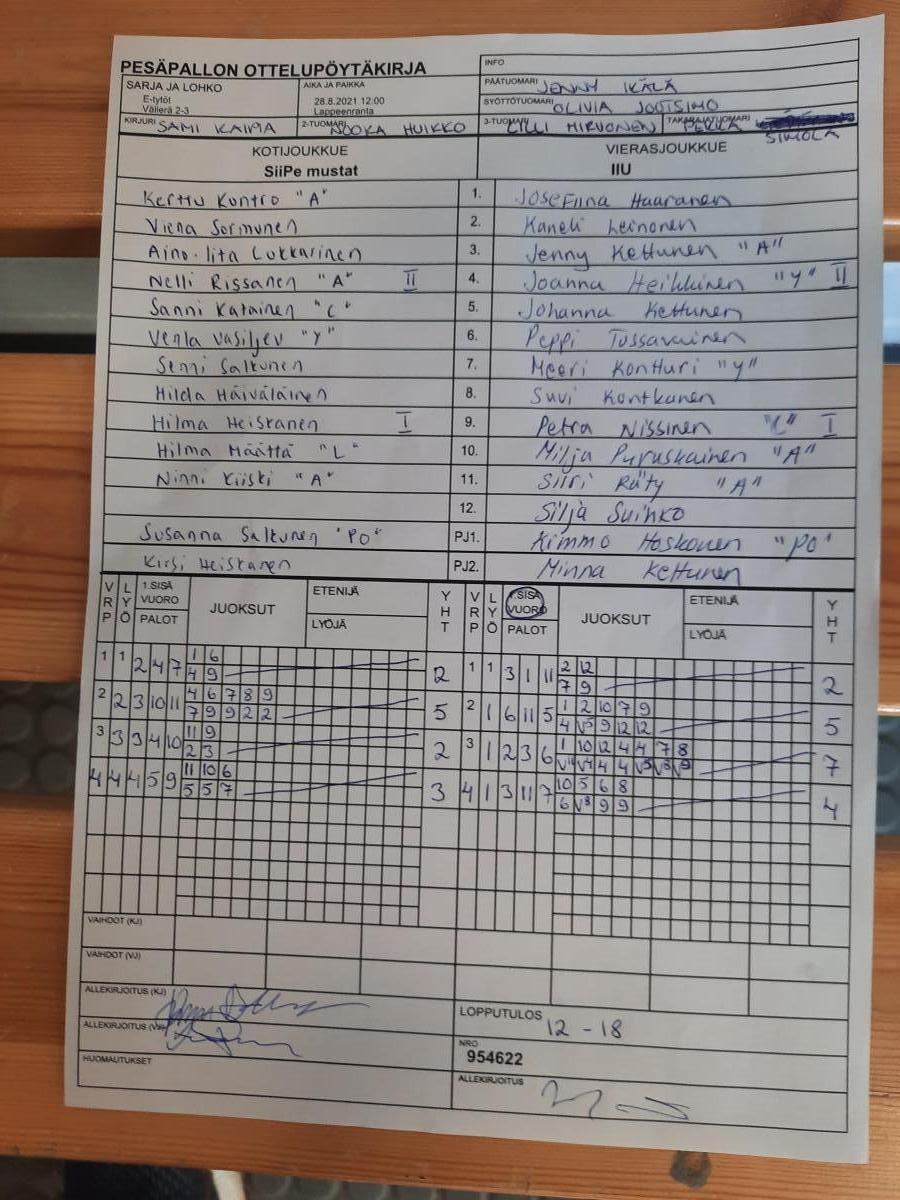 PESÄPALLON OTTELUPÖYTÄKIRJA
INFO
SARJA JA LOHKO
E-tytöt
Välierä 2-3
AIKA JA PAIKKA
28.8.2021 12:00
Lappeenranta
PÄÄTUOMARI JENNY IKÄLÄ
SYÖTTÖTUOMARI OLIVIA JOUTSIMO
KIRJURI SAMI KAIPIA 2-TUOMARI NOOKA HUIKKO 3-TUOMARI LILLI HIRVONEN TAKARAJATUOMARI PEKKA
SIMOLA
KOTIJOUKKUE VIERASJOUKKUE
SiiPe mustat IIU
Kerttu Kontro "A" 1. Josefiina Haaranen
Viena Sormunen 2. Kaneli Leinonen
Aino-Iita Lukkarinen 3. Jenny Kettunen "A"
Nelli Rissanen "A" II 4. Joanna Heikkinen "Y" II
Sanni Katainen "C" 5. Johanna Kettunen
Venla Vasiljev "Y" 6. Peppi Tossavainen
Senni Saltunen 7. Meeri Kontturi "Y"
Hilda Häiväläinen 8. Suvi Kontkanen
Hilma Heiskanen I 9. Petra Nissinen "C" I
Hilma Määttä "L" 10. Milja Puruskainen "A"
Ninni Kiiski "A" 11. Siiri Räty "A"
12. Silja Suihko
Susanna Saltunen "PO" PJ1. Kimmo Hoskonen "PO"
Kirsi Heiskanen PJ2. Minna Kettunen
VRP LYÖ 1.SISÄ VUORO PALOT JUOKSUT ETENIJÄ LYÖJÄ YHT VRP LYÖ 1.SISÄ VUORO PALOT JUOKSUT ETENIJÄ LYÖJÄ YHT
1 1 2 4 7 1 6 2 1 1 3 1 11 2 12 2
4 9 7 9
2 2 3 10 11 4 6 7 8 9 5 2 1 6 11 5 1 2 10 7 9 5
7 9 9 2 2 4 V5 9 12 12
3 3 3 4 10 11 9 2 3 1 2 3 6 1 10 12 4 4 7 8 7
2 3 V11 V4 4 4 V5 V8 V9
4 4 4 5 9 11 10 6 3 4 1 3 11 7 10 5 6 8 4
5 5 7 6 V8 9 9
VAIHDOT (KJ)
VAIHDOT (VJ)
ALLEKIRJOITUS (KJ)
ALLEKIRJOITUS (VJ)
HUOMAUTUKSET
LOPPUTULOS 12 - 18
NRO
954622
ALLEKIRJOITUS